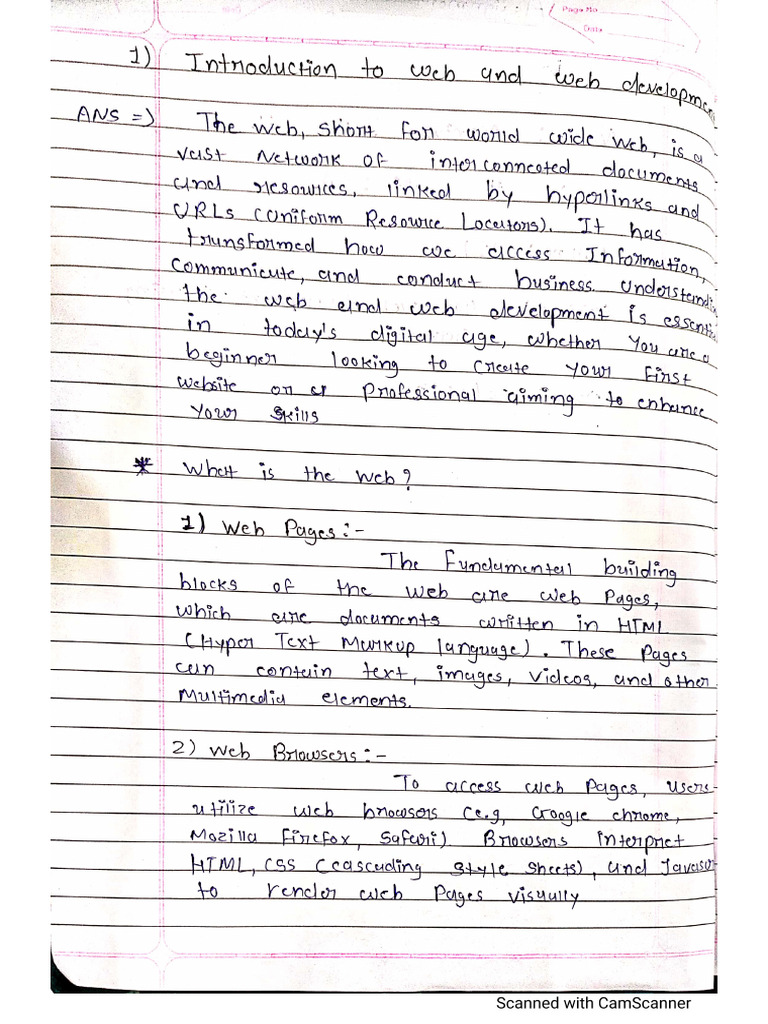 Page No
Date
1) Introduction to web and web developme
ANS => The web, short for world wide web, is a
vast Network of interconnected documents
and resources, linked by hyperlinks and
URLs (Uniform Resource Locators). It has
transformed how we access Information,
communicate, and conduct business. Understandi
the web and web development is essenti
in today's digital age, whether You are a
beginner looking to create your first
website or a Professional aiming to enhance
Your skills
* What is the web?
1) Web Pages:-
The Fundamental building
blocks of the web are web Pages,
which are documents written in HTML
(Hyper Text Markup language). These Pages
can contain text, images, videos, and other
Multimedia elements.
2) Web Browsers:-
To access web Pages, users
utilize web browsers (e.g, Google chrome,
Mozilla Firefox, Safari) Browsers interpret
HTML, CSS (cascading style sheets), and Javascr
to render web Pages visually
Scanned with CamScanner